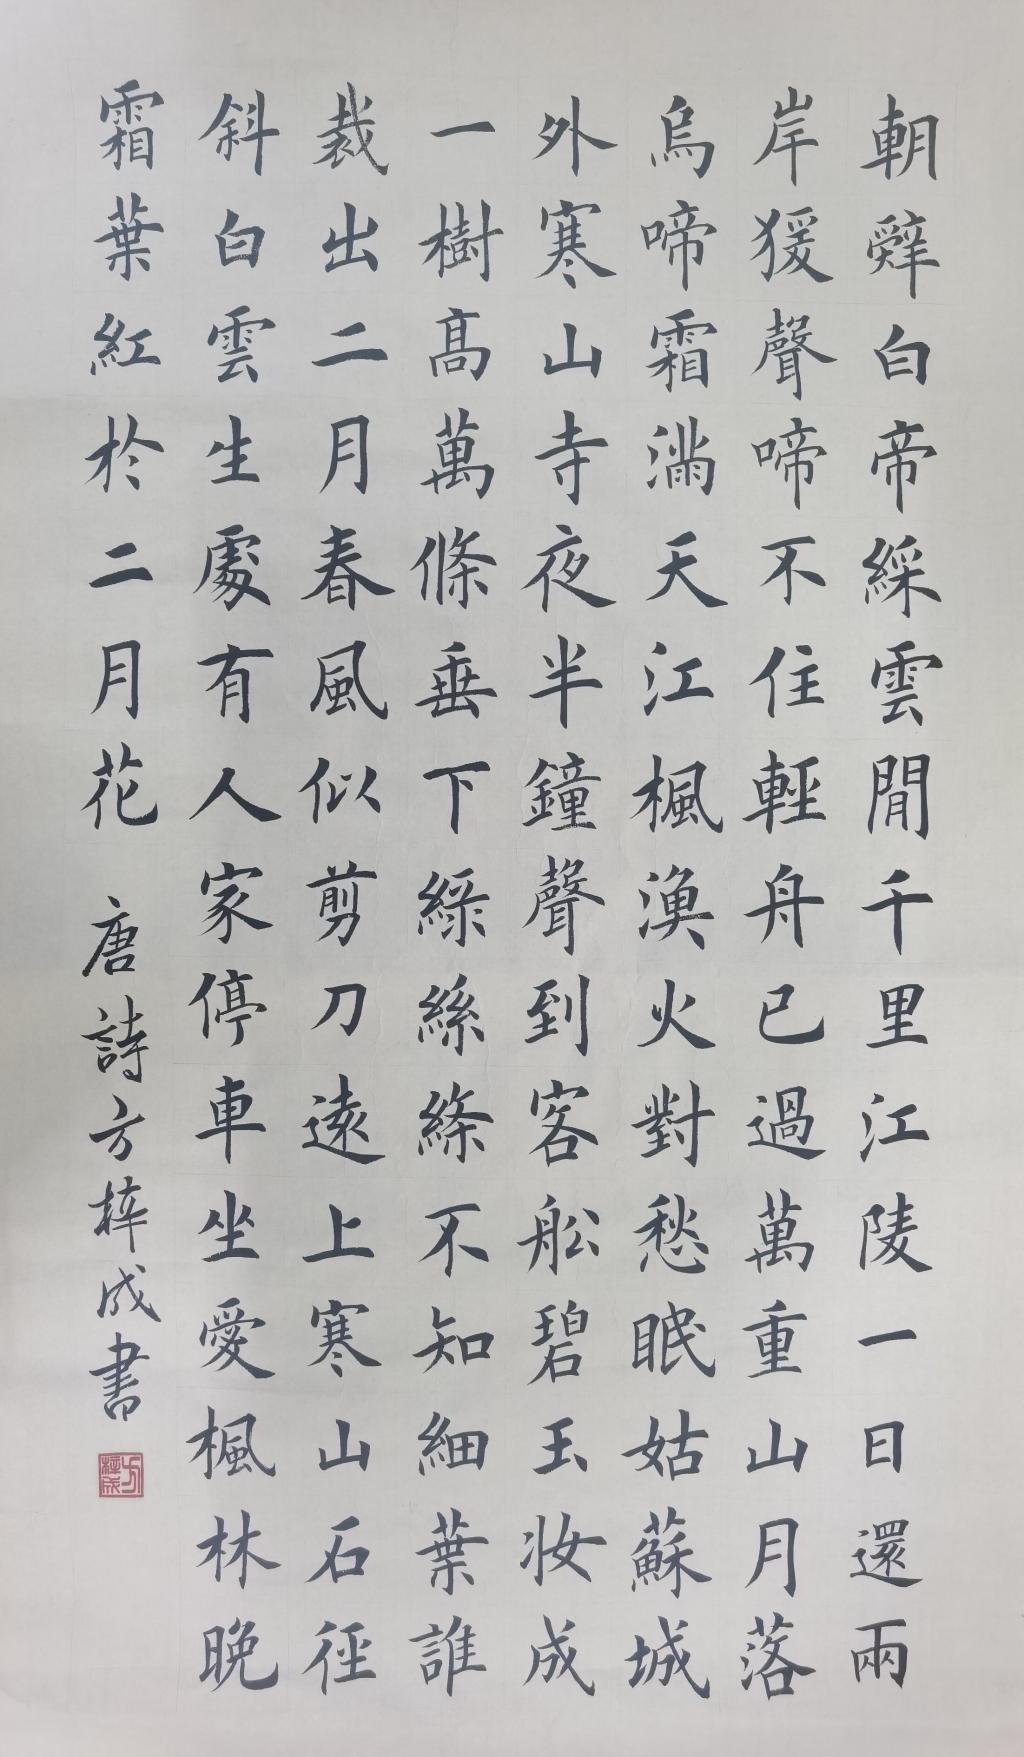 朝辤白帝綵雲閒千里江陵一日還兩
岸猨聲啼不住輕舟已過萬重山月落
烏啼霜滿天江楓漁火對愁眠姑蘇城
外寒山寺夜半鐘聲到客舩碧玉妝成
一樹高萬條垂下綠絲絛不知細葉誰
裁出二月春風似剪刀遠上寒山石徑
斜白雲生處有人家停車坐愛楓林晚
霜葉紅於二月花
唐詩方梓成書
方梓成